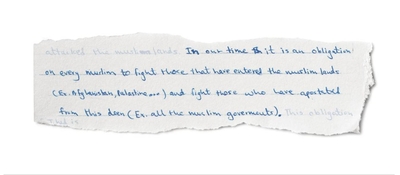 attacked the muslim lands In our time it is an obligation
on every muslim to fight those that have entered the muslim lands
(Ex. Afghanistan, Palestine...) and fight those who have apostated
from this deen (Ex. all the muslim goverments). this obligation